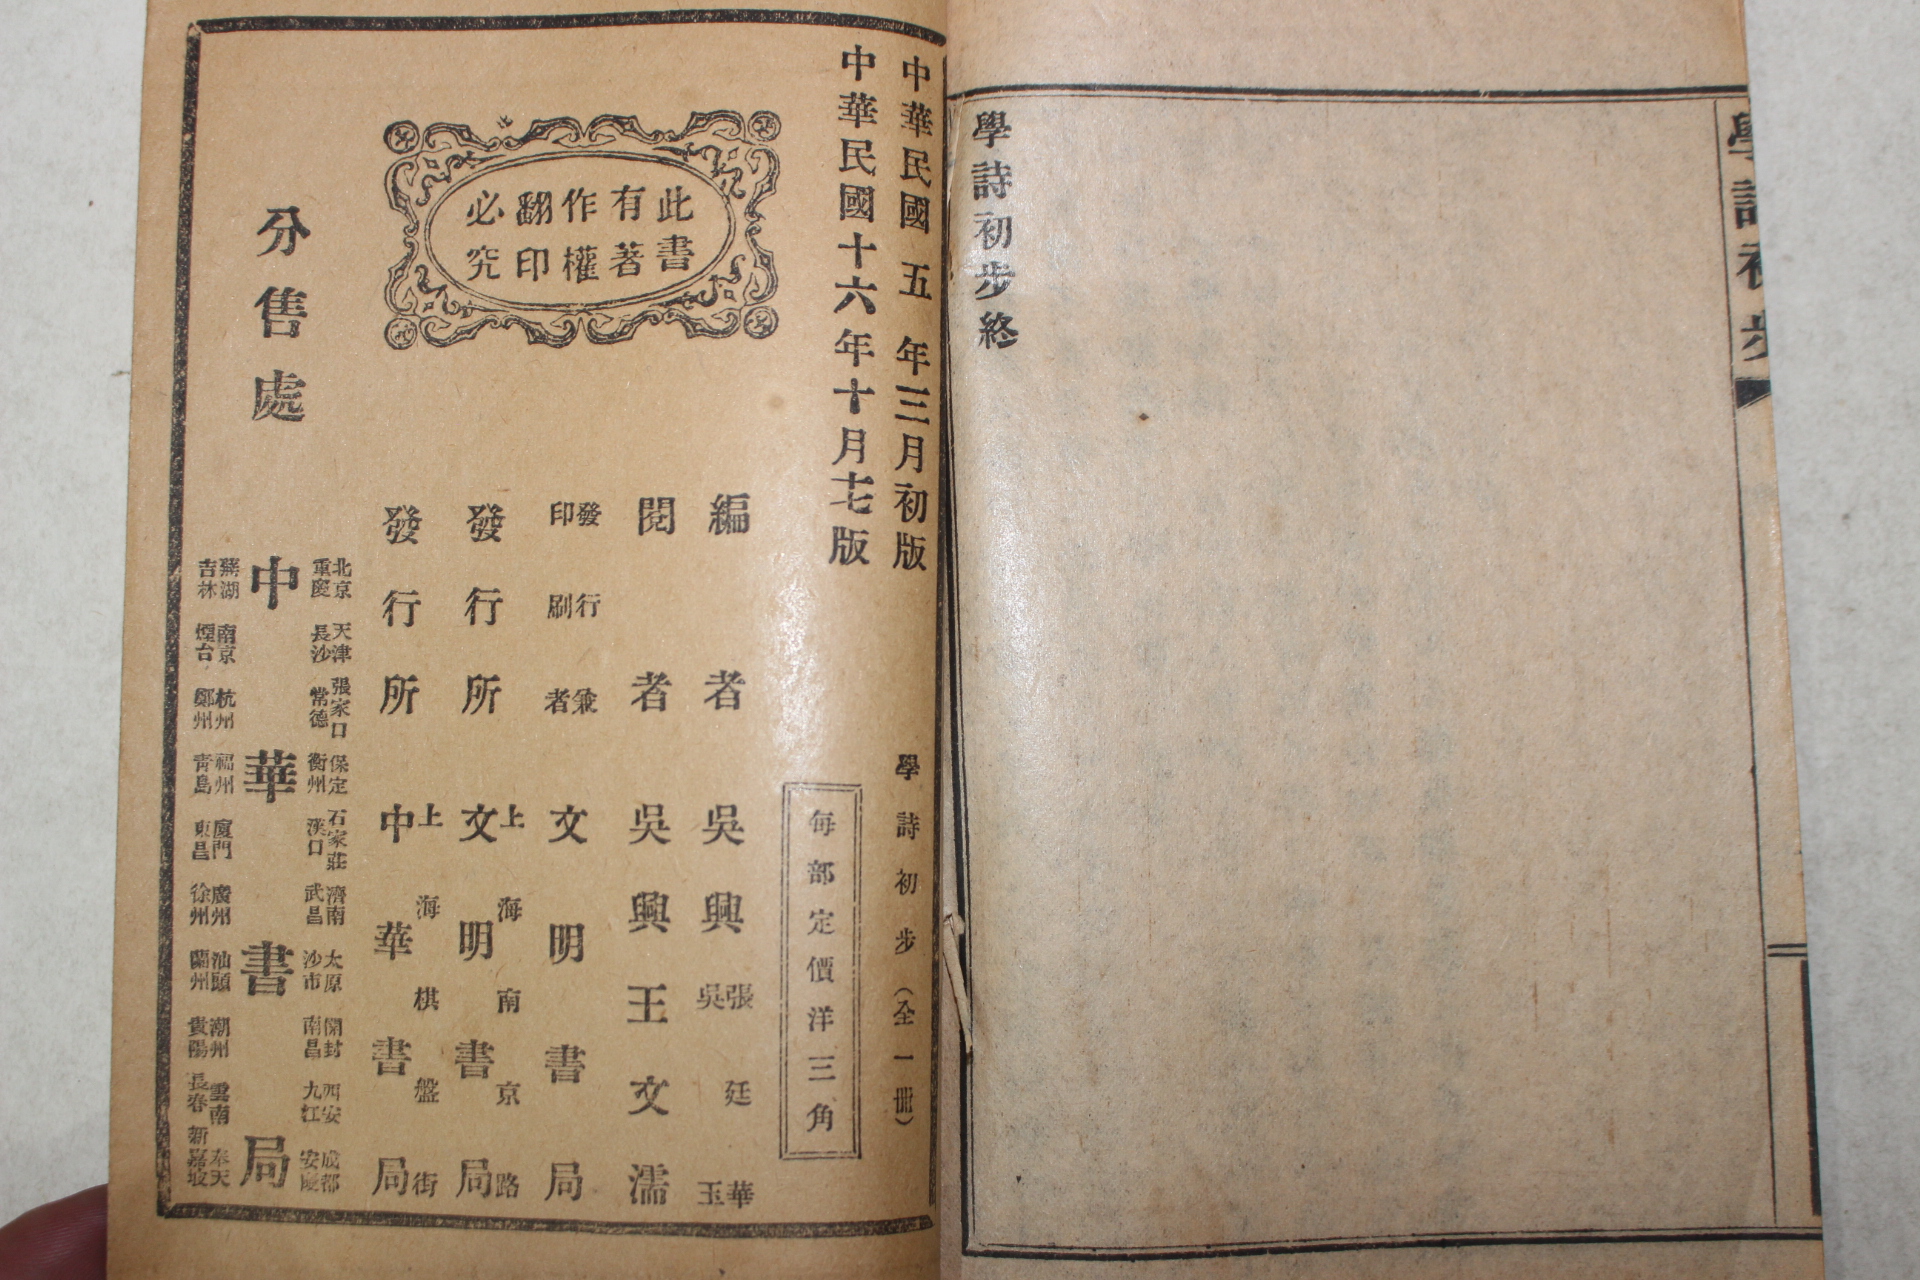 學詩初步
學詩初步終
中華民國五年三月初版
中華民國十六年十月十七版
學詩初步(全一冊)
每部定價洋三角
此書
有著
作權
翻印
必究
編者 吳興 張廷華 吳玉
閱者 吳興王文濡
發行兼印刷者 文明書局
發行所 上海南京路 文明書局
發行所 上海棋盤街 中華書局
分售處
北京 天津 張家口 保定 石家莊 濟南 太原 開封 西安 成都
重慶 長沙 常德 衡州 漢口 武昌 沙市 南昌 九江 安慶
中華書局
蕪湖 南京 杭州 福州 廈門 廣州 汕頭 潮州 雲南 奉天
吉林 煙台 鄭州 青島 東昌 徐州 蘭州 貴陽 長春 新嘉坡